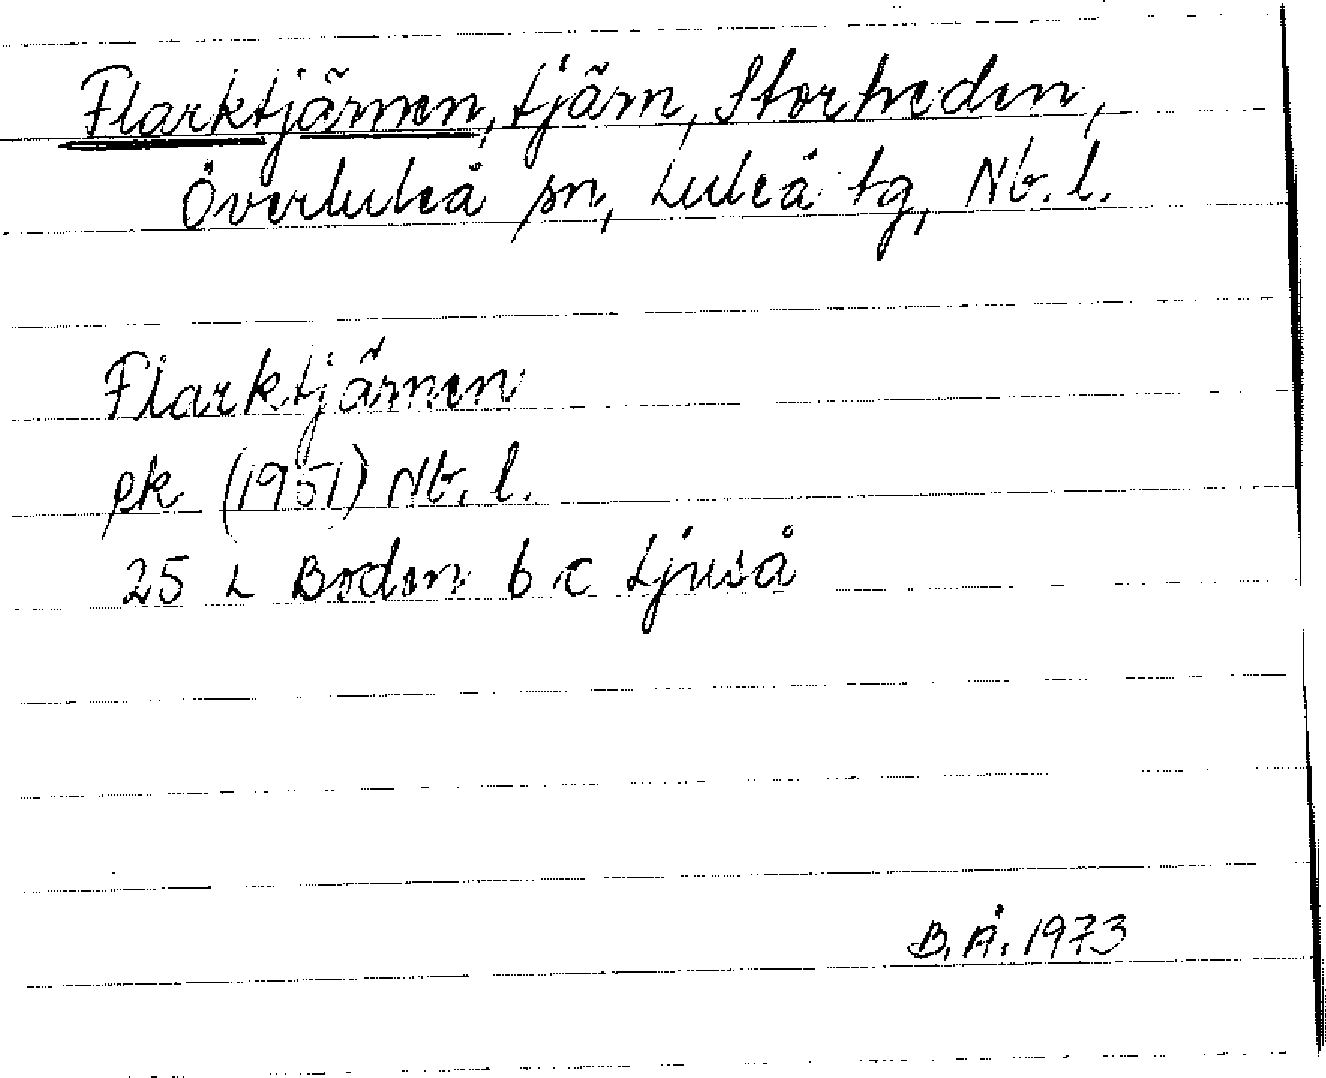 Flarktjärnen, tjärn, Storheden,
Överluleå sn, Luleå tg, Nb. l.
Flarktjärnen
pk (1951) Nb. l.
25 L Boden b c Ljuså
B. Å. 1973